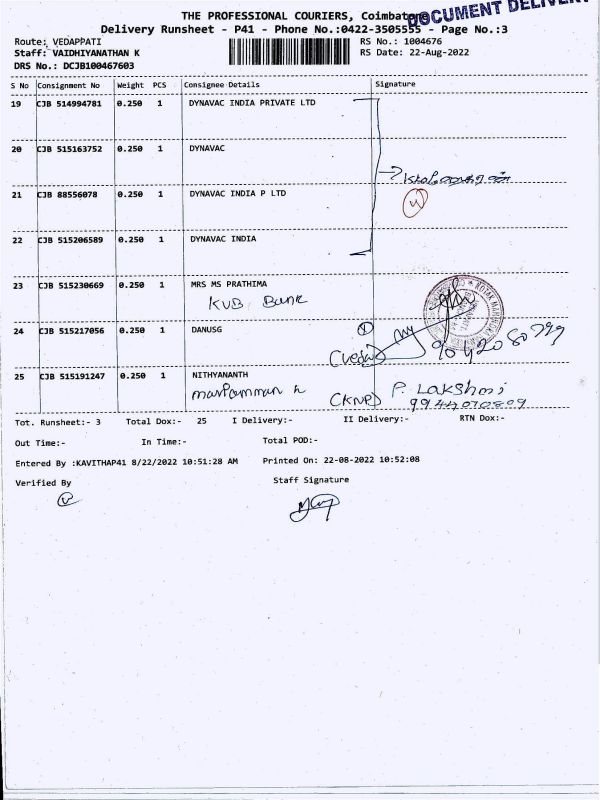 THE PROFESSIONAL COURIERS, Coimbatore
DOCUMENT DELIVERY
Delivery Runsheet - P41 - Phone No.:0422-3505555 - Page No.:3
Route: VEDAPPATI
RS No.: 1004676
Staff: VAIDHIYANATHAN K
RS Date: 22-Aug-2022
DRS No.: DCJB100467603
S No Consignment No Weight PCS Consignee Details Signature
19 CJB 514994781 0.250 1 DYNAVAC INDIA PRIVATE LTD
20 CJB 515163752 0.250 1 DYNAVAC
21 CJB 88556078 0.250 1 DYNAVAC INDIA P LTD
22 CJB 515206589 0.250 1 DYNAVAC INDIA
23 CJB 515230669 0.250 1 MRS MS PRATHIMA
KVB Bank
24 CJB 515217056 0.250 1 DANUSG
25 CJB 515191247 0.250 1 NITHYANANTH
(KNP) P. Lakshmi
9944070809
Tot. Runsheet:- 3 Total Dox:- 25 I Delivery:- II Delivery:- RTN Dox:-
Out Time:- In Time:- Total POD:-
Entered By :KAVITHAP41 8/22/2022 10:51:28 AM Printed On: 22-08-2022 10:52:08
Verified By Staff Signature